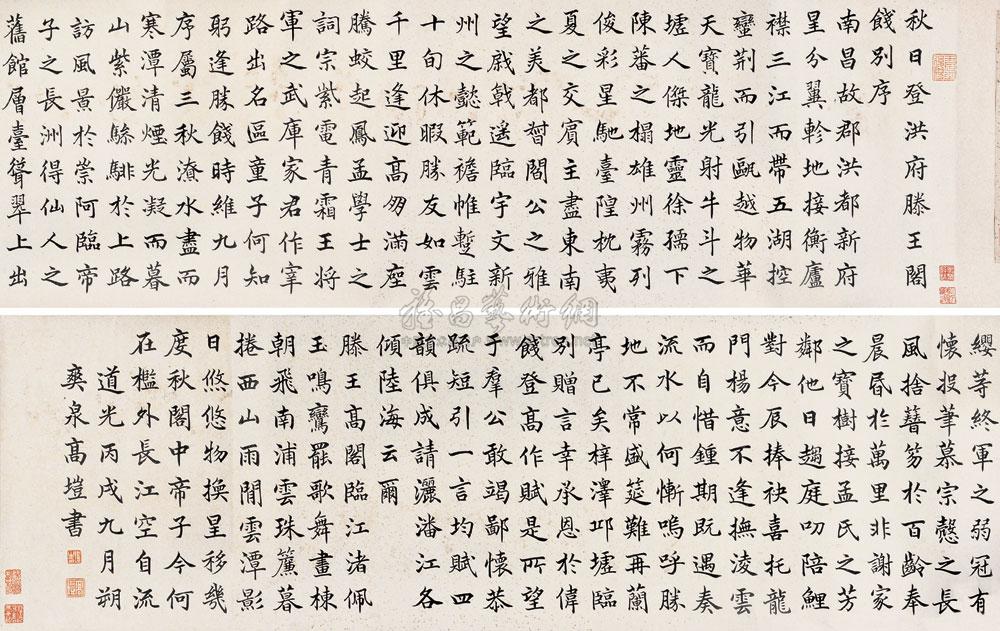 秋日登洪府滕王閣
餞別序
南昌故郡洪都新府
星分翼軫地接衡廬
襟三江而帶五湖控
蠻荊而引甌越物華
天寶龍光射牛斗之
墟人傑地靈徐孺下
陳蕃之榻雄州霧列
俊彩星馳臺隍枕夷
夏之交賓主盡東南
之美都督閻公之雅
望戚戟遙臨宇文新
州之懿範襜帷蹔駐
十旬休暇勝友如雲
千里逢迎高朋滿座
騰蛟起鳳孟學士之
詞宗紫電青霜王將
軍之武庫家君作宰
路出名區童子何知
躬逢勝餞時維九月
序屬三秋潦水盡而
寒潭清煙光凝而暮
山紫儼驂騑於上路
訪風景於崇阿臨帝
子之長洲得仙人之
舊館層臺聳翠上出
纓等終軍之弱冠有
懷投筆慕宗慤之長
風捨簪笏於百齡奉
晨昏於萬里非謝家
之寶樹接孟氏之芳
鄰他日趨庭叨陪鯉
對今辰捧袂喜托龍
門楊意不逢撫淩雲
而自惜鍾期既遇奏
流水以何慚嗚呼勝
地不常盛筵難再蘭
亭已矣梓澤邱墟臨
別贈言幸承恩於偉
餞登高作賦是所望
于羣公敢竭鄙懷恭
疏短引一言均賦四
韻俱成請灑潘江各
傾陸海云爾
滕王高閣臨江渚佩
玉鳴鸞罷歌舞畫棟
朝飛南浦雲珠簾暮
捲西山雨閒雲潭影
日悠悠物換星移幾
度秋閣中帝子今何
在檻外長江空自流
道光丙戌九月朔
爽泉高塏書
隆昌藝術網